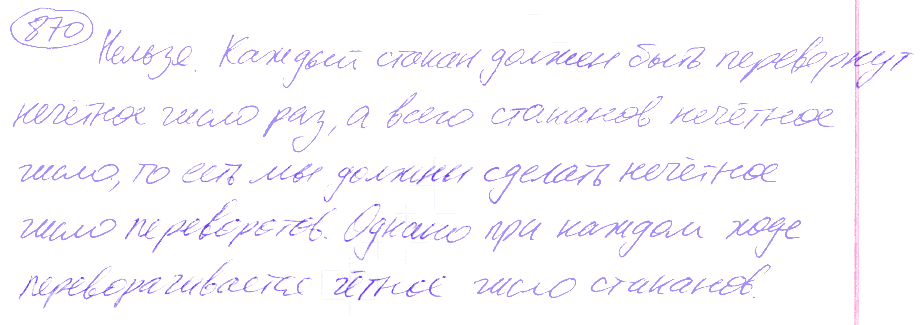 870
Нельзя. Каждый стакан должен быть перевернут
нечётное число раз, а всего стаканов нечётное
число, то есть мы должны сделать нечётное
число переворотов. Однако при каждом ходе
переворачивается чётное число стаканов.